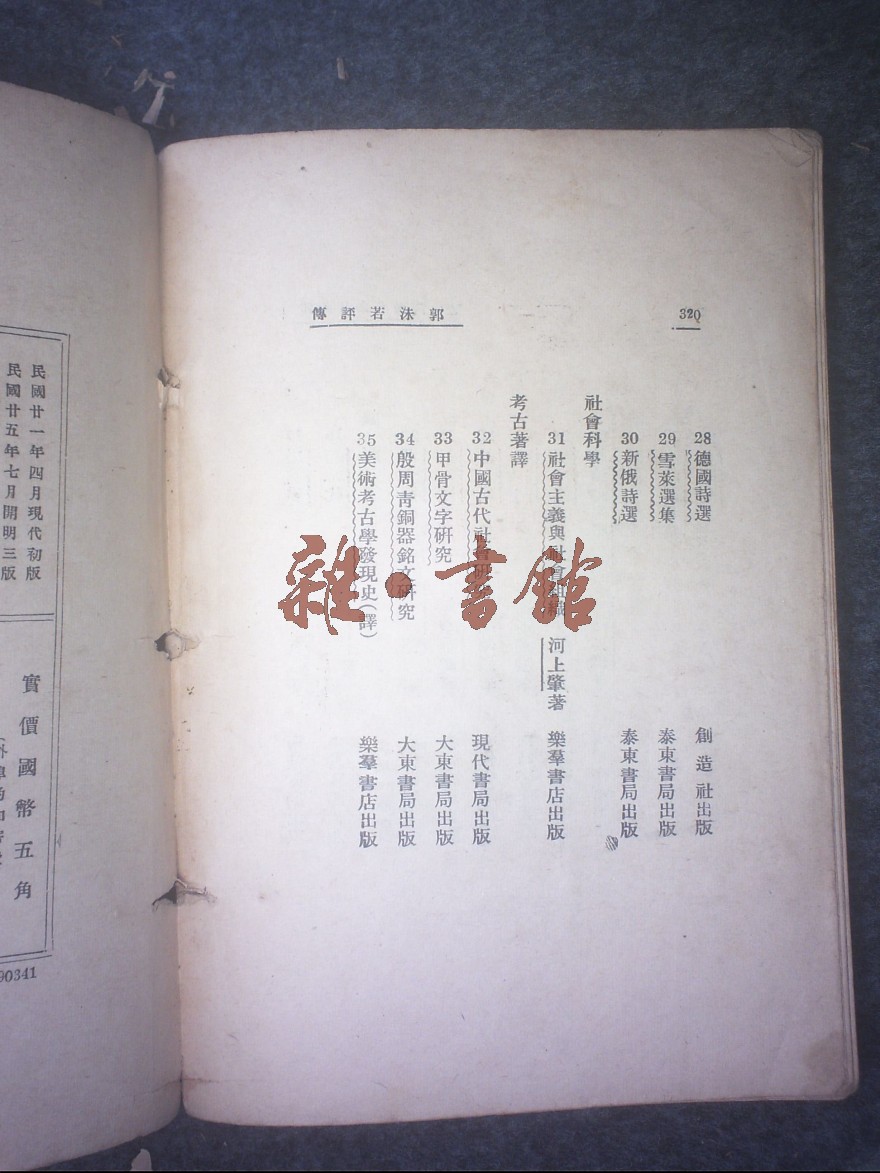 320
郭沫若評傳
28 德國詩選 創造社出版
29 雪萊選集 泰東書局出版
30 新俄詩選 泰東書局出版
社會科學
31 社會主義與社會組織 河上肇著 樂羣書店出版
考古著譯
32 中國古代社會研究 現代書局出版
33 甲骨文字研究 大東書局出版
34 殷周青銅器銘文研究 大東書局出版
35 美術考古學發現史(譯) 樂羣書店出版
雜·書館
民國廿一年四月現代初版
民國廿五年七月開明三版
實價國幣五角
90341